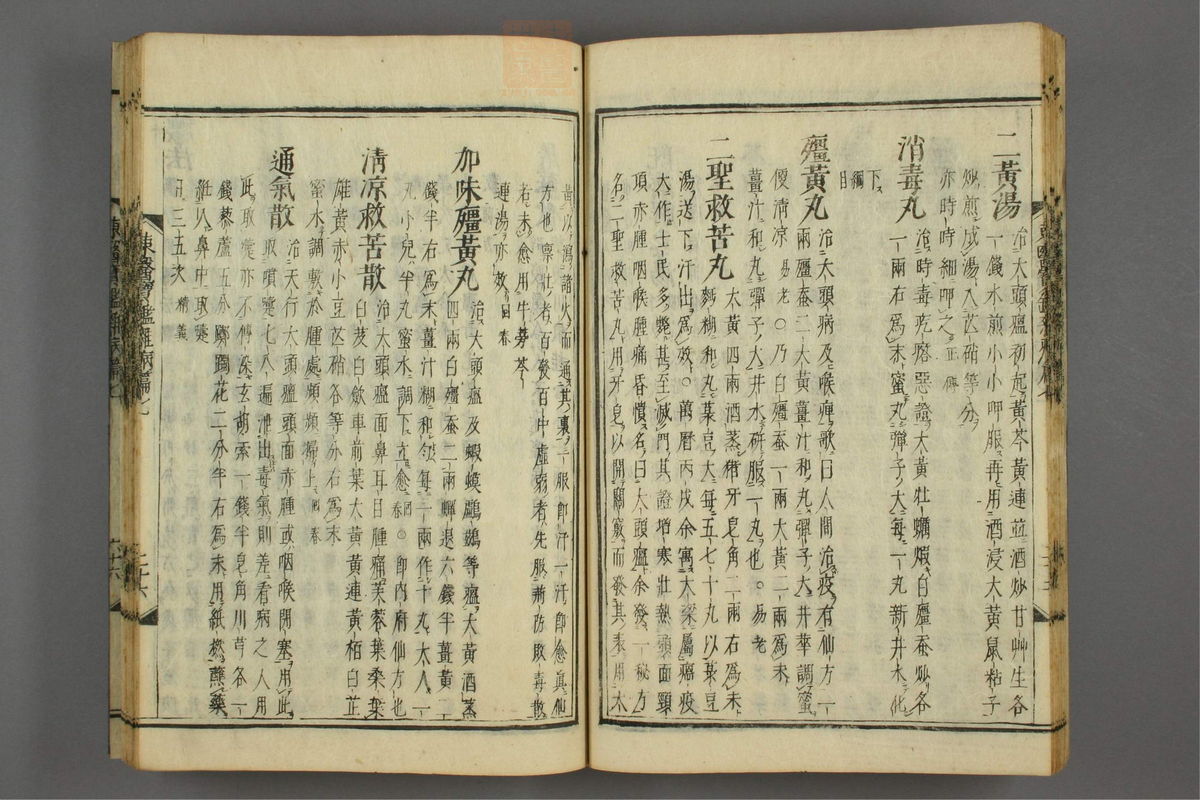 二黃湯 治大頭瘟初起黃芩黃連並酒炒甘艸生各
一錢水煎小小呷服再用酒浸大黃鼠粘子
炒煎成湯入芒硝等分
亦時時細呷之正傳
消毒丸 治時毒疙瘩惡證大黃牡蠣煆白殭蚕炒各
一兩右爲末蜜丸彈子大每一丸新井水化
下綱目
殭黃丸 治大頭病及喉痺歌曰人間治疫有仙方一
兩殭蚕二大黃薑汁和丸彈子大井華調蜜
便淸凉易老○乃白殭蚕一兩大黃二兩爲末
薑汁和丸彈子大井水硏服一丸也○易老
二聖救苦丸 大黃四兩酒蒸猪牙皂角二兩右爲末
麪糊和丸菉豆大每五七十丸以菉豆
湯送下汗出爲效○萬曆丙戌余寓大梁屬瘟疫
大作士民多斃甚至滅門其證增寒壯熱頭面頸
項赤腫咽喉腫痛昏憒名曰大頭瘟余發一秘方
名二聖救苦丸用牙皂以開關竅而發其表用大
黃以瀉諸火而通其裏一服卽汗一汗卽愈眞仙
方也稟壯者百發百中虛弱者先服荊防敗毒散
若未愈用牛蒡芩
連湯亦效回春
加味殭黃丸 治大頭瘟及蝦蟆鸕鶿等瘟大黃酒蒸
四兩白殭蚕二兩蟬退六錢半薑黃二
錢半右爲末薑汁糊和勻每一兩作十丸大人一
丸小兒半丸蜜水調下立愈回春○卽內府仙方也
淸凉救苦散 治大頭瘟面鼻耳目腫痛芙蓉葉桑葉
白芨白歛車前葉大黃黃連黃栢白芷
雄黃赤小豆芒硝各等分右爲末
蜜水調敷於腫處頻頻掃上回春
通氣散 治天行大頭瘟頭面赤腫或咽喉閉塞用此
取嚏七八遍泄出毒氣則差看病之人用
此取嚏亦不傳染玄胡索一錢半皂角川芎各一
錢藜蘆五分躑躅花二分半右爲末用紙撚蘸藥
紝入鼻中取嚏
日三五次精義
東醫寶鑑雜病篇七
二十六